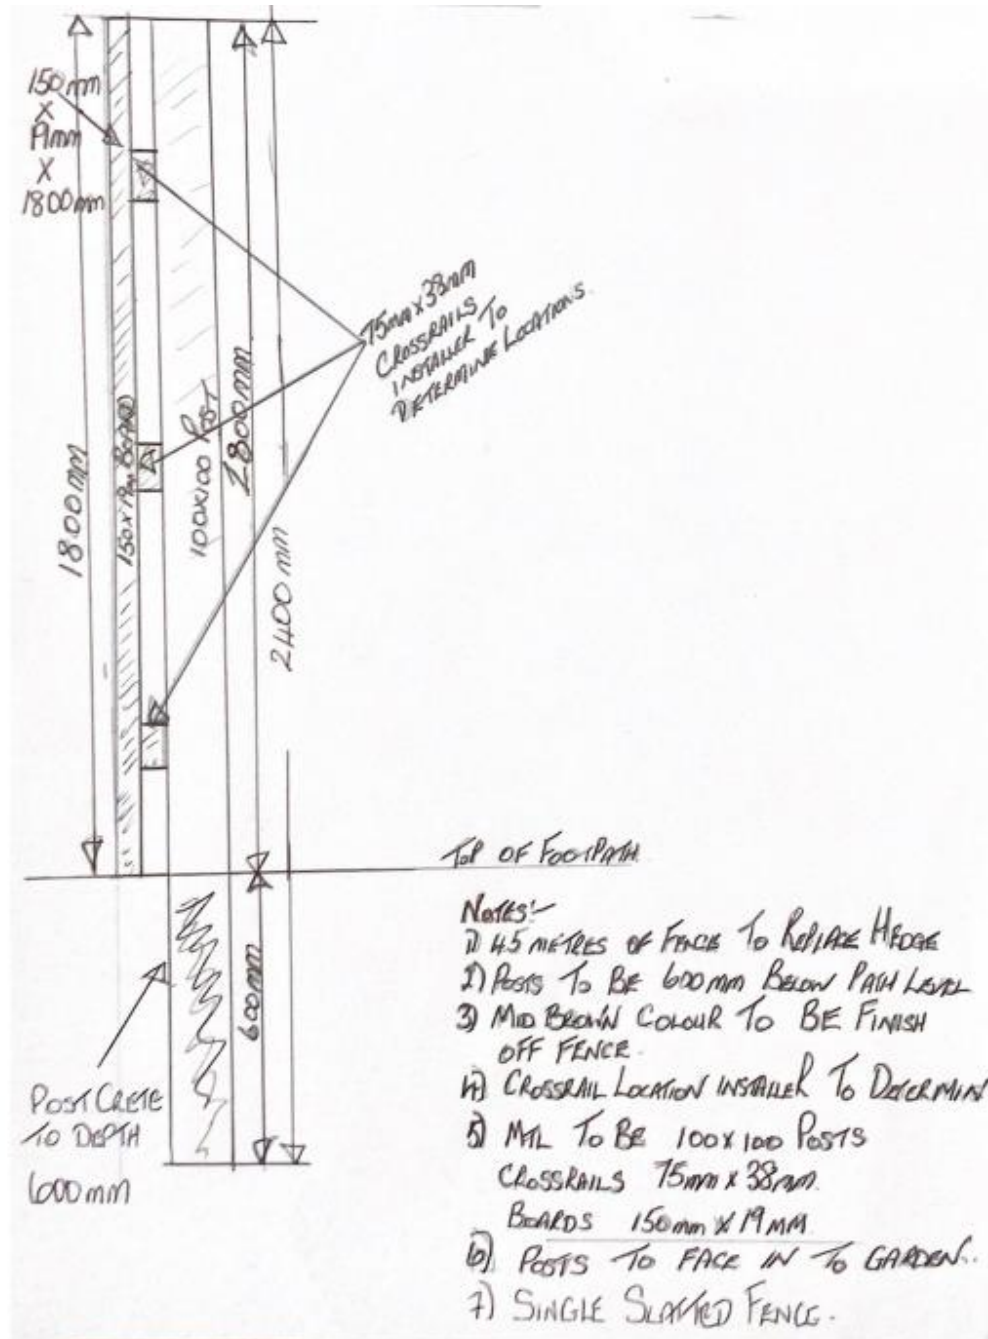 150mm
X
19mm
X
1800mm
75mm X 38mm
CROSSRAILS
INSTALLER TO
DETERMINE LOCATIONS.
1800mm
150 X 19mm BOARD
100X100 POST
1800mm
2400mm
TOP OF FOOTPATH
600mm
POST CRETE
TO DEPTH
600mm
NOTES:-
1) 45 METRES OF FENCE TO REPLACE HEDGE
2) POSTS TO BE 600mm BELOW PATH LEVEL
3) MID BROWN COLOUR TO BE FINISH
OFF FENCE.
4) CROSSRAIL LOCATION INSTALLER TO DETERMIN
5) MTL TO BE 100X100 POSTS
CROSSRAILS 75mm X 38mm.
BOARDS 150mm X 19MM
6) POSTS TO FACE IN TO GARDEN.
7) SINGLE SLATTED FENCE.